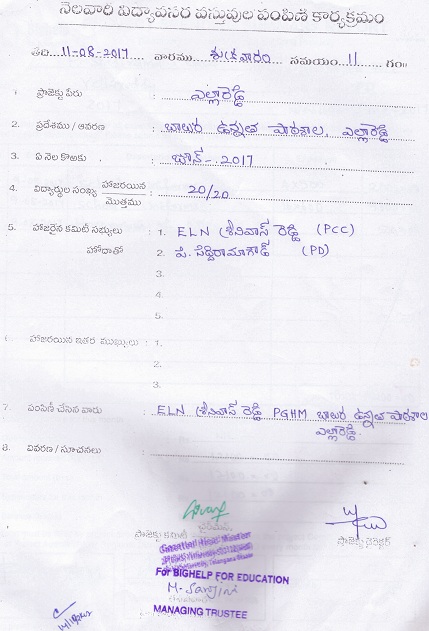 నెలవారి విద్యావసర వస్తువుల పంపిణి కార్యక్రమం
తేది 11-08-2017 వారము శుక్రవారం సమయం 11 గం॥
1. ప్రాజెక్టు పేరు : ఎల్లారెడ్డి
2. ప్రదేశము / ఆవరణ : బాలుర ఉన్నత పాఠశాల, ఎల్లారెడ్డి
3. ఏ నెల కొఱకు : జూన్ - 2017
4. విద్యార్థుల సంఖ్య హాజరయిన / మొత్తము : 20/20
5. హాజరైన కమిటీ సభ్యులు : 1. ELN శ్రీనివాస్ రెడ్డి (PCC)
హోదాతో 2. పి. పెద్దిరామాగౌడ్ (PD)
3.
4.
5.
6. హాజరయిన ఇతర ముఖ్యులు : 1.
2.
3.
7. పంపిణీ చేసిన వారు : ELN శ్రీనివాస్ రెడ్డి PGHM బాలుర ఉన్నత పాఠశాల
ఎల్లారెడ్డి.
8. వివరణ / సూచనలు :
ప్రాజెక్టు కమిటీ ఛైర్మన్ ప్రాజెక్టు డైరెక్టర్
Gazetted Head Master
For BIGHELP FOR EDUCATION
M. Sarojini
MANAGING TRUSTEE